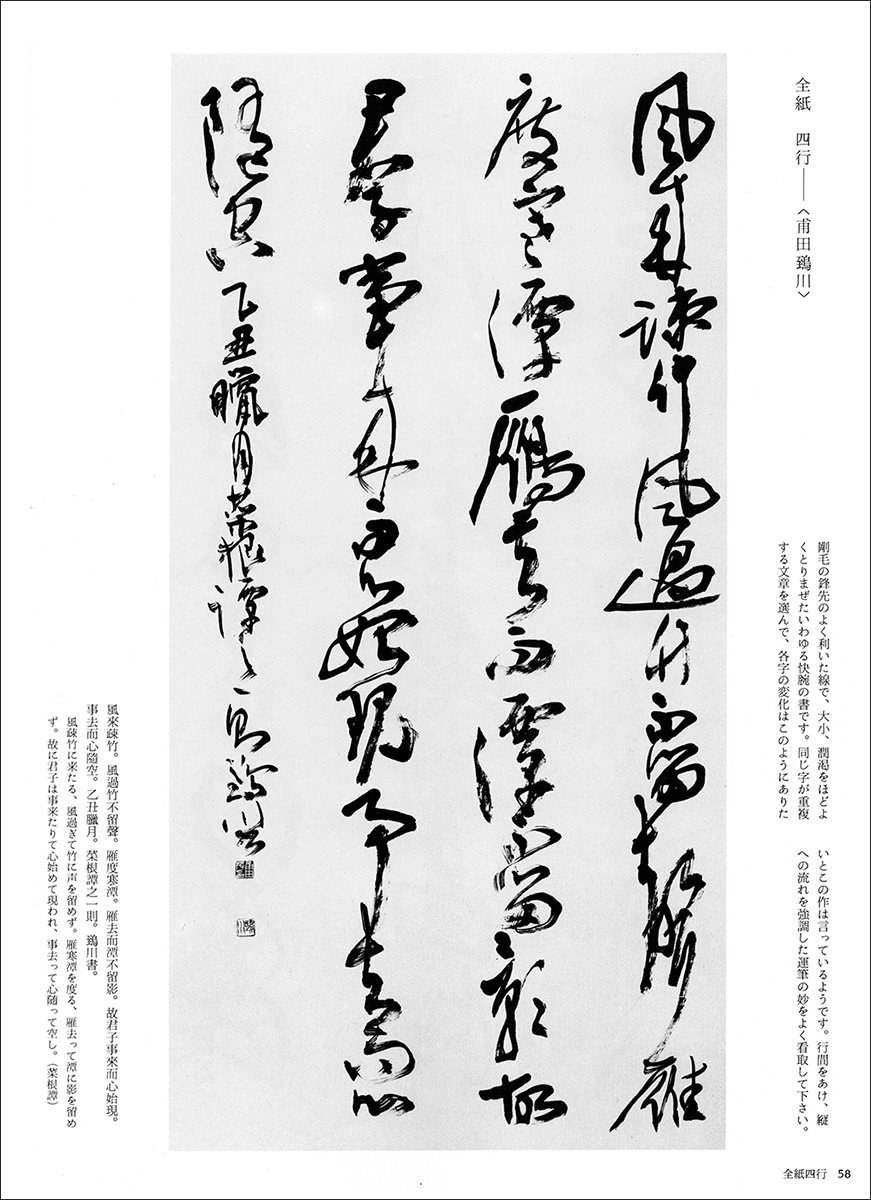 全紙 四行——〈甫田鵄川〉
剛毛の鋒先のよく利いた線で、大小、潤渇をほどよ
くとりまぜたいわゆる快腕の書です。同じ字が重複
する文章を選んで、各字の変化はこのようにありた
いとこの作は言っているようです。行間をあけ、縦
への流れを強調した運筆の妙をよく看取して下さい。
風來疎竹風過竹不留聲雁
度寒潭雁去而潭不留影故
君子事來而心始現事去而心
隨空 乙丑臘月菜根譚之一則鵄川書
風來疎竹。風過竹不留聲。雁度寒潭。雁去而潭不留影。故君子事來而心始現。
事去而心隨空。乙丑臘月。菜根譚之一則。鵄川書。
風疎竹に来たる、風過ぎて竹に声を留めず。雁寒潭を度る、雁去って潭に影を留め
ず。故に君子は事来たりて心始めて現われ、事去って心随って空し。（菜根譚）
全紙四行 58